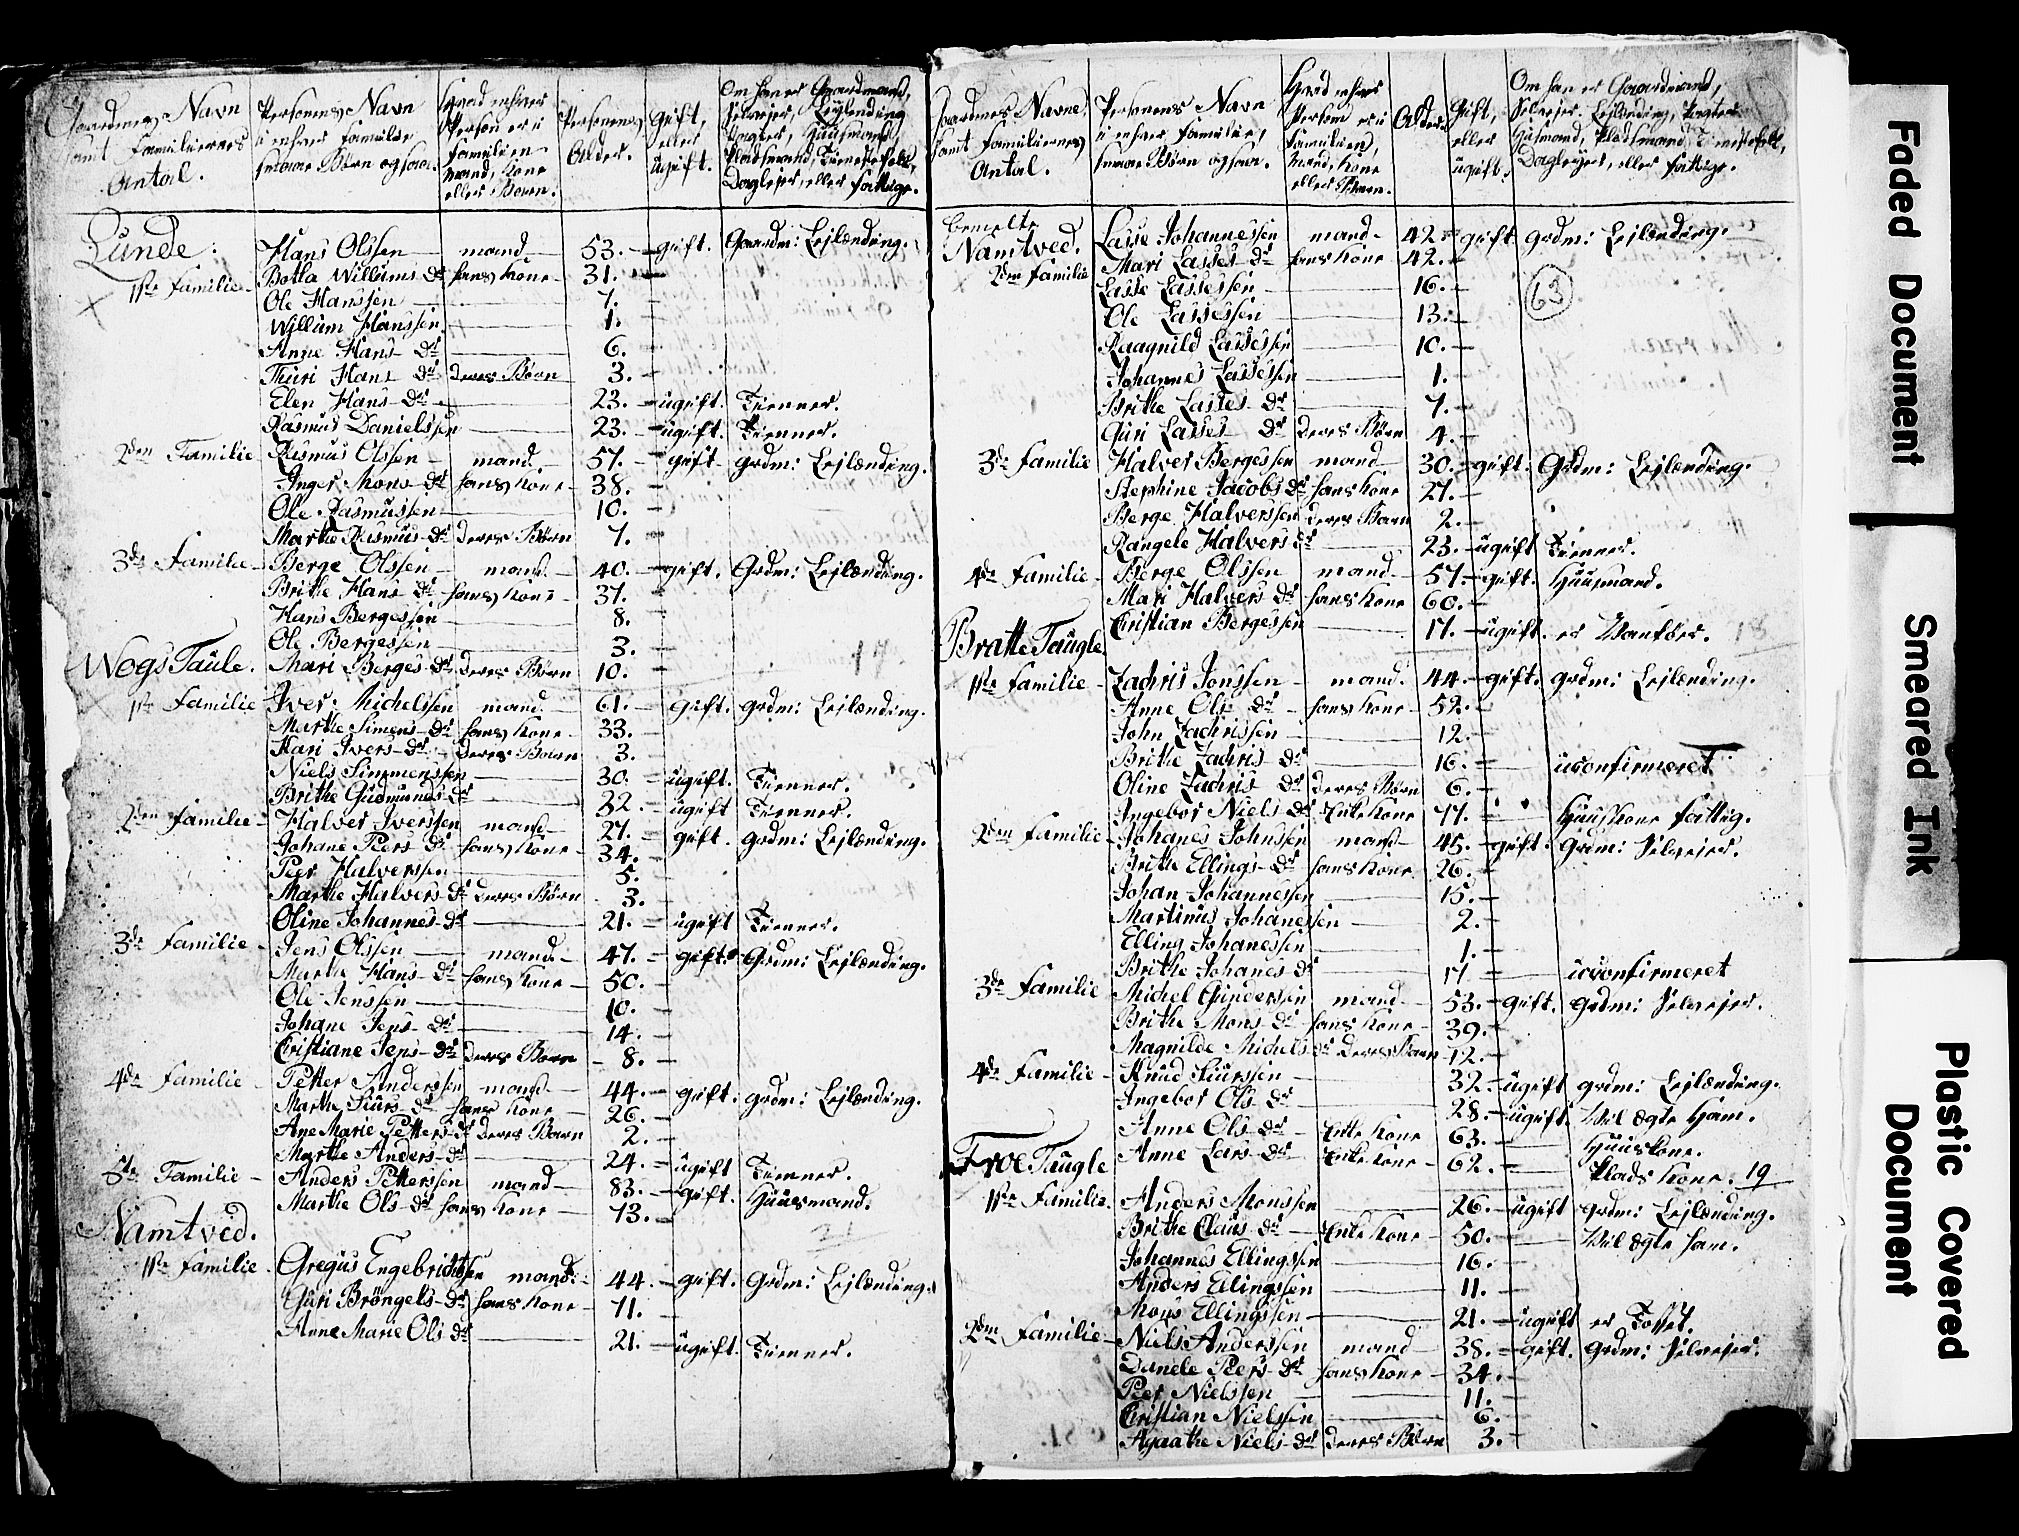 Gaardenes Navn samt Familiernes Antal.
Personens Navn i enhver Familie, smaae Børn ogsaa.
Hvad enhver Person er i Familien Mand, Kone eller Barn.
Personens Alder.
Gift, eller ugift.
Om han er Gaardmand, Selvejer, Lejlænding Pagter, Huusmand, Pladsmand, Tienestefolk, Daglejer, eller fattige.
Lunde:
Hans Olssen mand 53. gift. Gaardm: Lejlænding.
1ste Familie Botla Willums Dr hans kone 31.
Ole Hanssen 7.
Willum Hanssen 1.
Anne Hans Dr 6.
Thuri Hans Dr deres Børn 3.
Elen Hans Dr 23. ugift. Tienner.
Rasmus Danielssen 23. ugift. Tienner.
2den Familie Rasmus Olssen mand 57. gift grdm: Lejlænding.
Inger Mons Dr hans kone 38.
Ole Rasmussen 10.
Marthe Rasmus Dr deres Børn 7.
3de Familie Berge Olssen mand 40. gift. Grdm: Lejlænding.
Brithe Hans Dr hans kone 37.
Hans Bergessen 8.
Ole Bergessen 3.
WogsTaule. Mari Berges Dr deres Børn 10.
1ste Familie Iver Michelssen mand 61. gift. grdm: Lejlænding.
Marthe Simens Dr hans kone 33.
Kari Ivers Dr deres Barn 3.
Niels Simmenssen 30. ugift. Tienner.
Brithe Gudmunds Dr 32. ugift Tienner.
2den Familie Halver Iverssen mand 27. gift grdm: Lejlænding.
Johane Peers Dr hans kone 34.
Peer Halverssen 5.
Marthe Halvers Dr deres Børn 3.
Oline Johannes Dr 21. ugift Tienner.
3de Familie Jens Olssen mand 47. gift. Grdm: Lejlænding.
Marthe Hans Dr hans kone 50.
Ole Jenssen 10.
Johane Jens Dr 14.
Cristiane Jens Dr deres Børn 8.
4de Familie Petter Anderssen mand 44. gift. grdm: Lejlænding.
Marthe Siurs Dr hans kone 26.
Ane Marie Petters Dr deres Barn 2.
Marthe Anders Dr 24. ugift Tienner.
5te Familie Anders Petterssen mand 83. gift. Huusmand.
Marthe Ols Dr hans kone 73.
Namtvid.
1ste Familie Gregus Engebrichtsen mand: 44. gift. Grdm: Lejlænding.
Guri Brøngels Dr hans kone 71.
Anne Marie Ols Dr 21. ugift. Tienner.
Gaardenes Navne, samt Familiernes Antal.
Personens Navn i enhver Familie, smaae Børn ogsaa.
Hvad enhver Person er i Familien, Mand, Kone eller Barn.
Alder.
Gift, eller ugift.
Om han er Gaardmand, Selvejer, Lejlænding, Pagter Huusmand, Pladsmand, Tienestefolk, Daglejer, eller fattige.
bemelte
Namtved. Lasse Johannessen mand 42. gift grdm: Lejlænding.
Mari Lasses Dr hans kone 42.
2den Familie Lasse Lassessen 16.
63
Ole Lassessen 13.
Raagnild Lassessen 10.
Johannes Lassessen 1.
Brithe Lasses Dr 7.
Guri Lasses Dr deres Børn 4.
3de Familie Halver Bergessen mand 30. gift. Grdm: Lejlænding.
Stephine Jacobs Dr hans kone 27.
Berge Halverssen deres Barn 2.
Rangele Halvers Dr 23. ugift Tienner.
4de Familie Berge Olssen mand 57. gift. Huusmand.
Mari Halvers Dr hans kone 60.
Cristian Bergessen 17. ugift. er Vanfør.
BratteTaugle
1ste Familie Zachris Jonssen mand. 44. gift. grdm: Lejlænding.
Anne Ols Dr hans kone 52.
John Zachrissen 12.
Brithe Zachris Dr 16. uconfirmeret
Oline Zachris Dr deres Børn 6.
Ingebor Niels Dr Enke Kone 77. Huuskone fattig.
2den Familie Johanes Johnssen mand 45. gift. Grdm: Selvejer.
Brithe Ellings Dr hans kone 26.
Johan Johannessen 15.
Martinus Johanessen 2.
Elling Johanessen 1.
Brithe Johanes Dr 17 uconfirmeret
3de Familie Michel Gunderssen mand 53. gift. grdm: Selvejer.
Brithe Mons Dr hans kone 39.
Magnilde Michels Dr deres Barn 12.
4de Familie Knud Siurssen 32. ugift grdm: Lejlænding.
Ingebor Ols Dr 28. ugift. Wil Ægte Ham.
Anne Ols Dr Enke Kone 63. Huuskone.
FroeTaugle Anne Lars Dr Enke Kone 62. Plads Kone. 19
1ste Familie. Anders Monssen 26. ugift grdm: Lejlænding.
Brithe Claus Dr Enke Kone 50. Wil Ægte ham.
Johannes Ellingssen 16.
Anders Ellingssen 11.
Mons Ellingssen 21. ugift er Tosset.
2den Familie Niels Anderssen mand 38. gift. Grdm: Selvejer.
Danele Peers Dr hans kone 34.
Peer Nielssen 11.
Cristian Nielssen 6.
Agaathe Niels Dr deres Børn 3.
Faded Document
Smeared Ink
Plastic Covered Document